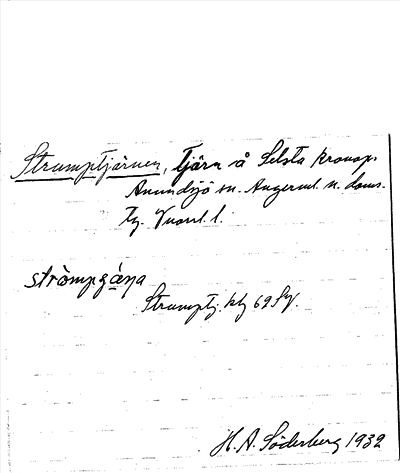 Strumptjärnen, Tjärn å Selsta kronop.
Anundsjö sn. Ångerml. n. doms.
tg. Vnorrl. l.
stròmpɕàṇa
Strumptj. kbl 69 SV.
H. A. Söderberg 1932